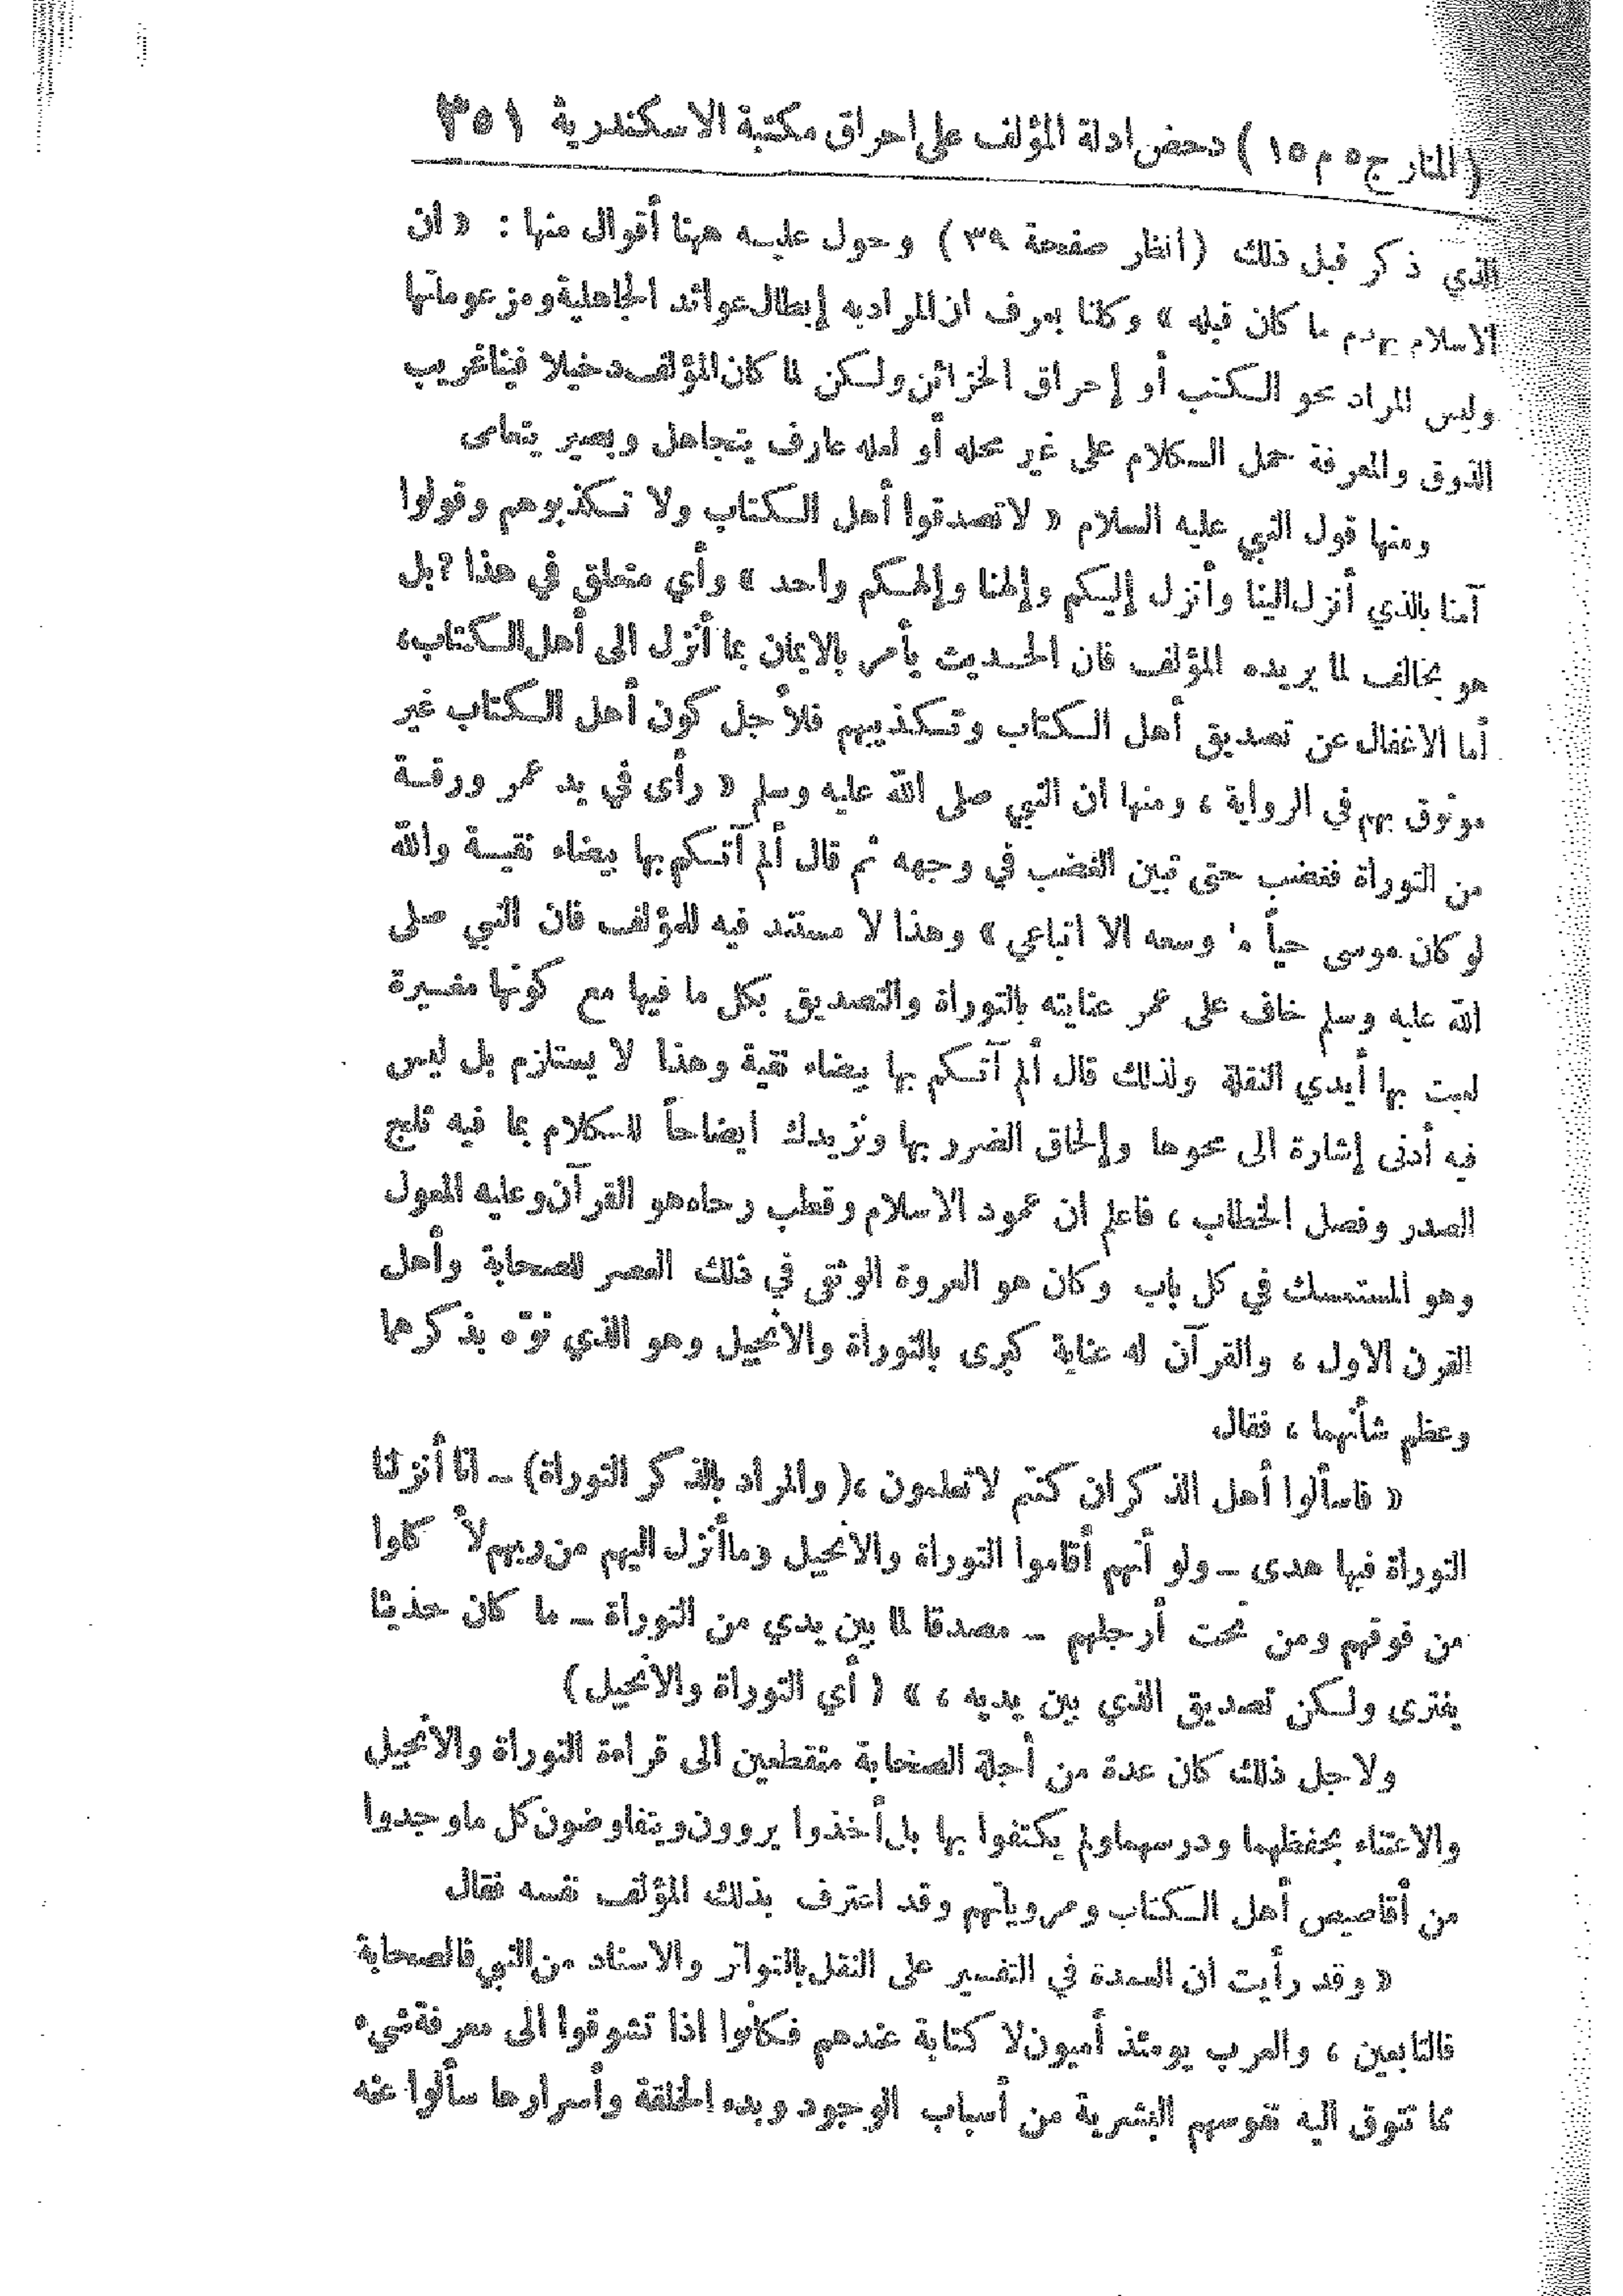 (المنار ج ٥ م ١٥) دحض ادلة المؤلف على احراق مكتبة الاسكندرية ٣٥١
الذي ذكر قبل ذلك (انظر صفحة ٣٩) وحول عليه ههنا أقوال منها: « ان
الاسلام يهدم ما كان قبله » وكلنا يعرف ان المراد به إبطال عوائد الجاهلية ومزعوماتها
وليس المراد محو الكتب أو إحراق الخزائن ولكن لما كان المؤلف دخيلا فينا غريب
الذوق والمعرفة حمل الكلام على غير محله أو لعله عارف يتجاهل وبصير يتعامى
ومنها قول النبي عليه السلام « لا تصدقوا أهل الكتاب ولا تكذبوهم وقولوا
آمنا بالذي أنزل الينا وأنزل إليكم وإلهنا وإلهكم واحد » وأي متعلق في هذا ? بل
هو يخالف لما يريده المؤلف فان الحديث يأمر بالايمان بما أنزل الى أهل الكتاب،
أما الاغفال عن تصديق أهل الكتاب وتكذيبهم فلأجل كون أهل الكتاب غير
موثوق بهم في الرواية ، ومنها ان النبي صلى الله عليه وسلم « رأى في يد عمر ورقة
من التوراة فغضب حتى تبين الغضب في وجهه ثم قال ألم آتكم بها بيضاء نقية والله
لو كان موسى حياً ما وسعه الا اتباعي » وهذا لا مستند فيه للمؤلف فان النبي صلى
الله عليه وسلم خاف على عمر عنايته بالتوراة والتصديق بكل ما فيها مع كونها مغيرة
لعبت بها أيدي النقلة ولذلك قال ألم آتكم بها بيضاء نقية وهذا لا يستلزم بل ليس
فيه أدنى إشارة الى محوها وإلحاق الضرر بها ونزيدك ايضاحاً للكلام بما فيه ثلج
الصدر وفصل الخطاب ، فاعلم ان عمود الاسلام وقطب رحاه هو القرآن وعليه المعول
وهو المستمسك في كل باب وكان هو العروة الوثقى في ذلك العصر للصحابة وأهل
القرن الاول ، والقرآن له عناية كبرى بالتوراة والانجيل وهو الذي نوّه بذكرهما
وعظم شأنهما ، فقال
« فاسألوا أهل الذكر ان كنتم لا تعلمون ،( والمراد بالذكر التوراة) ــ انا أنزلنا
التوراة فيها هدى ــ ولو أنهم أقاموا التوراة والانجيل وما أنزل اليهم من ربهم لأ كلوا
من فوقهم ومن تحت أرجلهم ــ مصدقا لما بين يدي من التوراة ــ ما كان حديثا
يفترى ولكن تصديق الذي بين يديه ، » ( أي التوراة والانجيل )
ولاجل ذلك كان عدة من أجلة الصحابة منقطعين الى قراءة التوراة والانجيل
والاعتناء بحفظهما ودرسهما ولم يكتفوا بها بل أخذوا يروون ويتفاوضون كل ما وجدوا
من أقاصيص أهل الكتاب ومروياتهم وقد اعترف بذلك المؤلف نفسه فقال
« وقد رأيت ان العمدة في التفسير على النقل بالتواتر والاسناد من النبي فالصحابة
فالتابعين ، والعرب يومئذ أميون لا كتابة عندهم فكانوا اذا تشوقوا الى معرفة شيء
مما تتوق اليه نفوسهم البشرية من أسباب الوجود وبدء الخلقة وأسرارها سألوا عنه